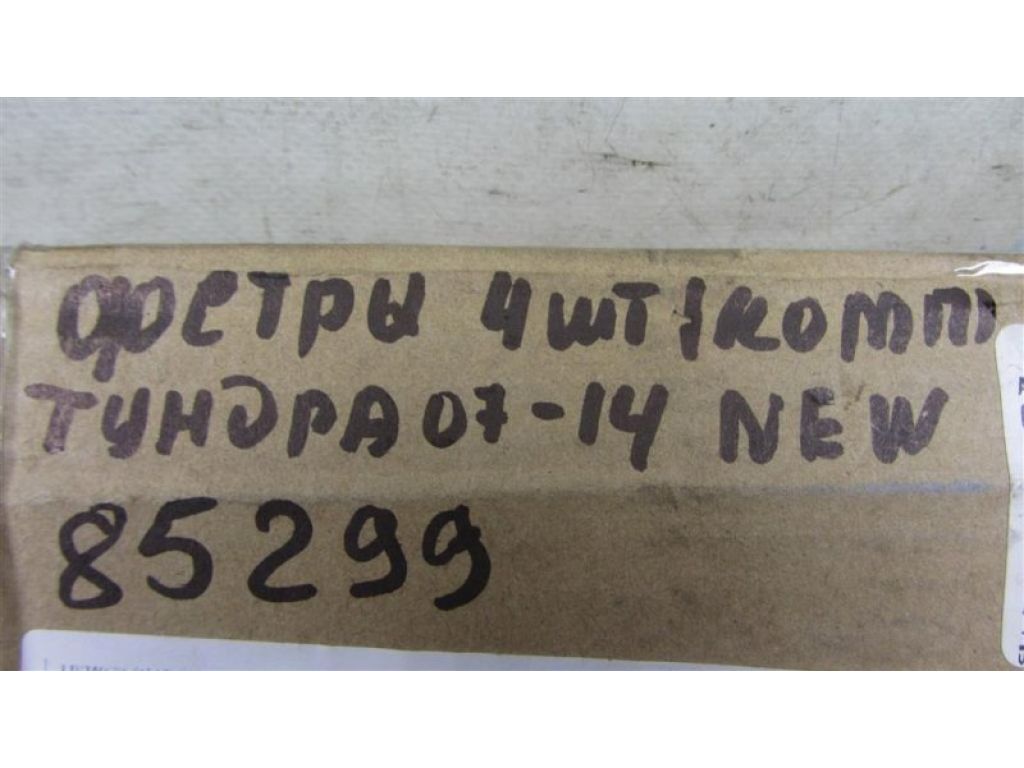 фестры 4шт/комп
тундра 07-14 NEW
85299